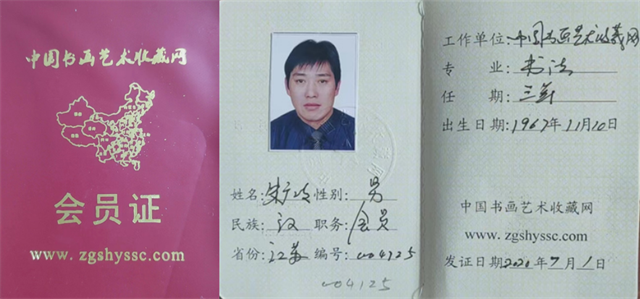 中国书画艺术收藏网
会员证
www. zgshyssc. com
姓名: 性别: 男
民族: 汉 职务: 会员
省份: 江苏 编号: 004125
004125
工作单位: 中国书画艺术收藏网
专 业: 书法
任 期: 三年
出生日期: 1967年11月10日
中国书画艺术收藏网
www. zgshyssc. com
发证日期 2020年7月1日